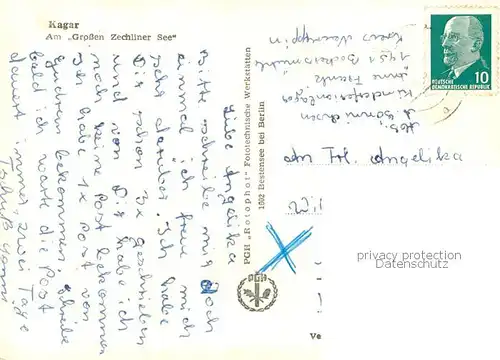 Kagar
Am „Großen Zechliner See"
Liebe Angelika
Bitte schreibe mir doch
einmal, ich freu mich
sehr darüber. Ich habe
Dir schon 3x geschrieben
und von Dir habe ich
noch keine Post bekommen
Ich habe 1x Post von
Gudrun bekommen. Schreibe
bald ich warte die Post
dauert immer zwei Tage
Tschüß
PGH „Rotophot" Fototechnische Werkstätten
1602 Bestensee bei Berlin
DEUTSCHE
DEMOKRATISCHE REPUBLIK
10
Abs.
Kinderferienlager
1951
Kreis Neuruppin
An Frl. Angelika
Wil
privacy protection
Datenschutz
Ve